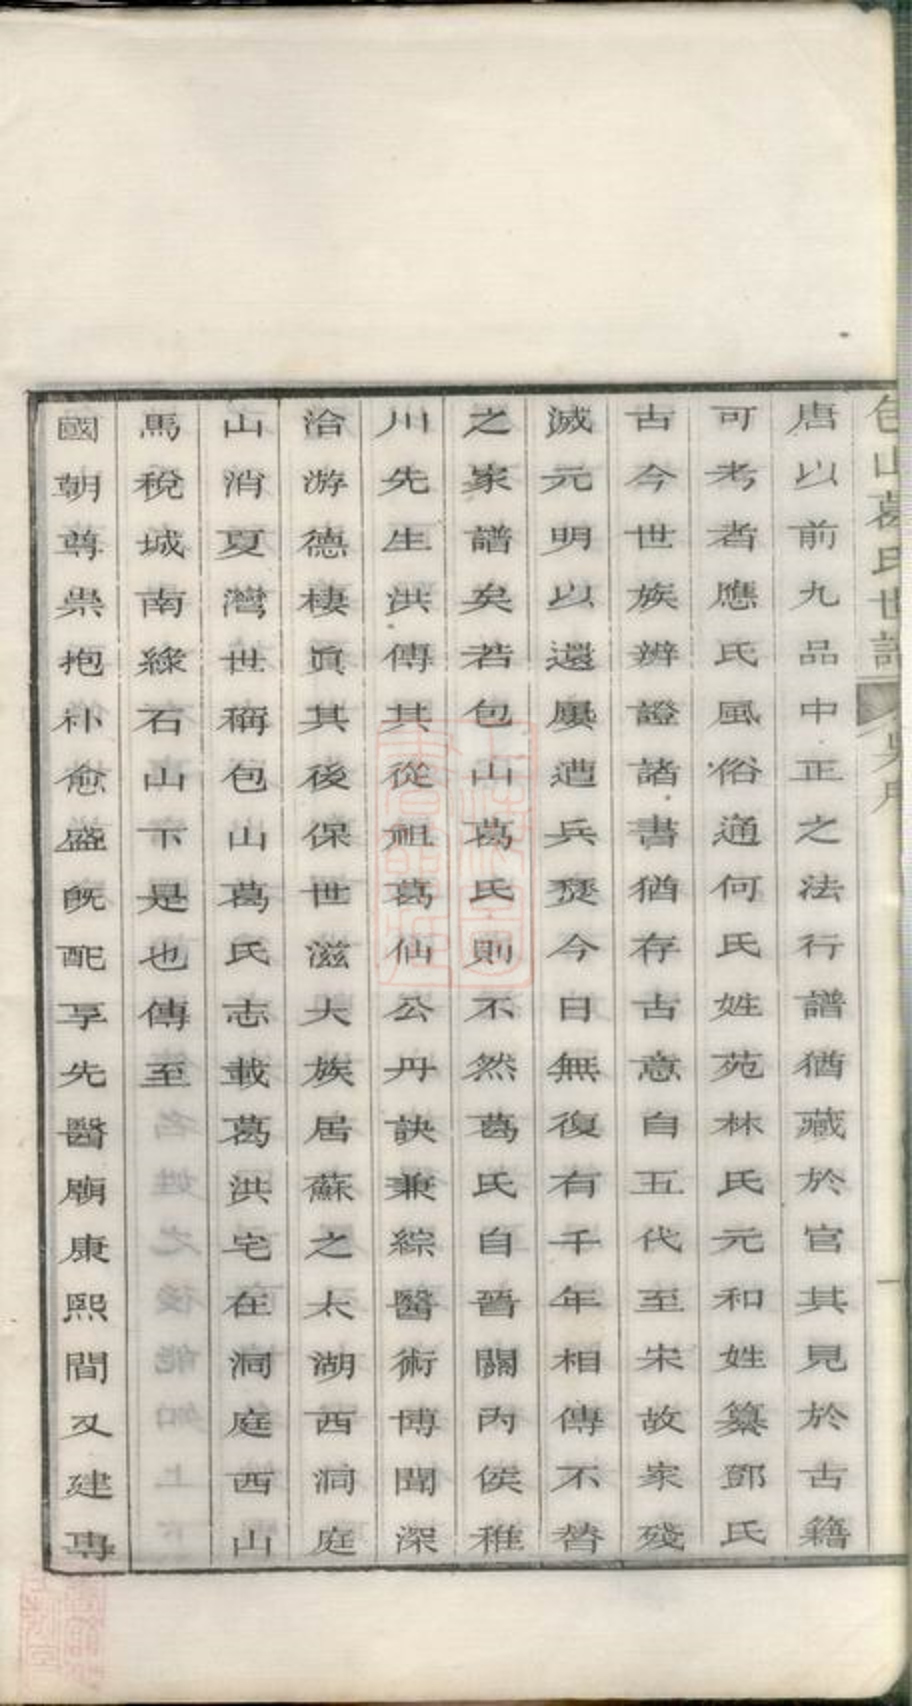 包山葛氏世譜 吳序 一
唐以前九品中正之法行譜猶藏於官其見於古籍
可考者應氏風俗通何氏姓苑林氏元和姓纂鄧氏
古今世族辨證諸書猶存古意自五代至宋故家殘
滅元明以還屢遭兵燹今日無復有千年相傳不替
之家譜矣若包山葛氏則不然葛氏自晉關內侯稚
川先生洪傳其從祖葛仙公丹訣兼綜醫術博聞深
洽游德棲真其後保世滋大族居蘇之太湖西洞庭
山消夏灣世稱包山葛氏志載葛洪宅在洞庭西山
馬稅城南綠石山下是也傳至
國朝尊崇抱朴愈盛旣配享先醫廟康熙間又建專
上海圖書館藏